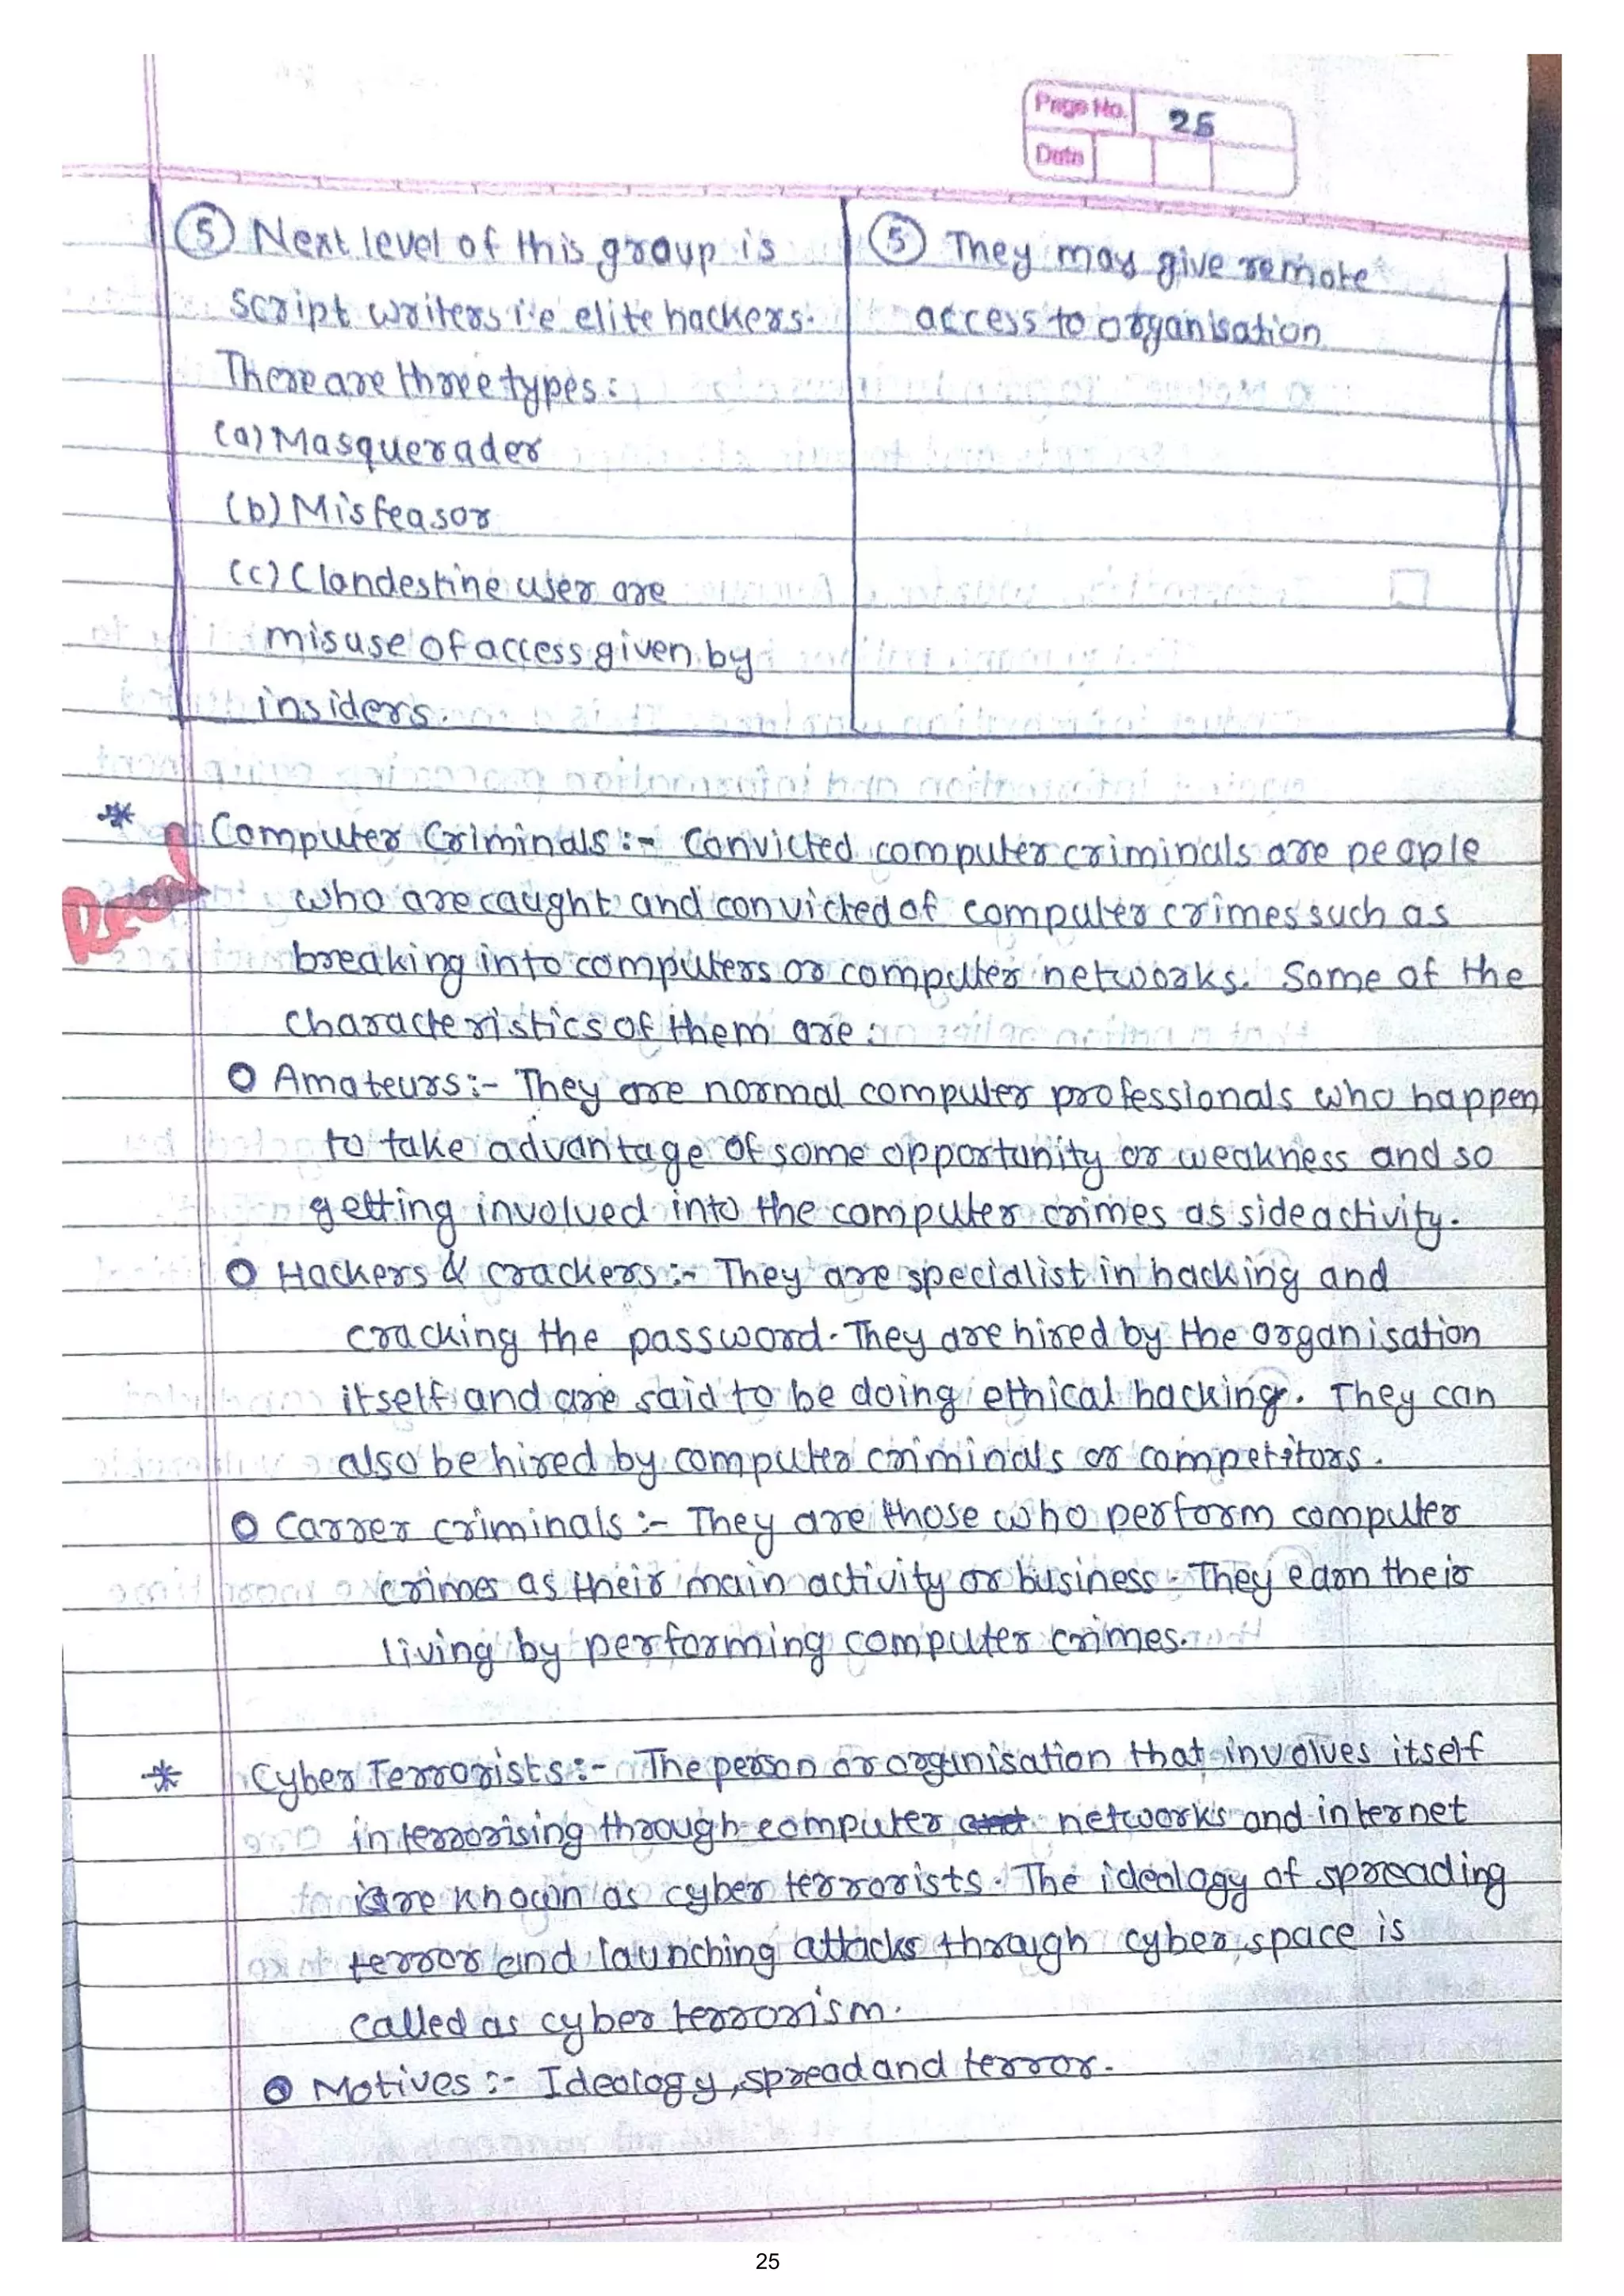 Page No. 25
Date
⑤ Next level of this group is
script writers i.e elite hackers.
There are three types:
(a) Masquerader
(b) Misfeasor
(c) Clandestine user are
misuse of access given by
insiders.
⑤ They may give remote
access to organisation
* Computer Criminals :- Convicted computer criminals are people
Read
who are caught and convicted of computer crimes such as
breaking into computers or computer networks. Some of the
characteristics of them are:
O Amateurs :- They are normal computer professionals who happen
to take advantage of some opportunity or weakness and so
getting involved into the computer crimes as side activity.
O Hackers & crackers :- They are specialist in hacking and
cracking the password. They are hired by the organisation
itself and are said to be doing ethical hacking. They can
also be hired by computer criminals or competitors.
O Carrer criminals :- They are those who perform computer
crimes as their main activity or business. They earn their
living by performing computer crimes.
* Cyber Terrorists :- The person or organisation that involves itself
in terrorising through computer networks and internet
are known as cyber terrorists. The ideology of spreading
terror and launching attacks through cyber space is
called as cyber terrorism.
O Motives :- Ideology, spread and terror.
25